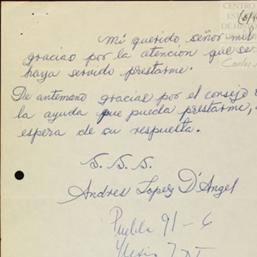 CENTRO
ES
DE HIS
Mi querido señor mil
gracias por la atencion que se
haya servido prestarme.
De antemano gracias por el consejo
la ayuda que pueda prestarme,
espera de su respuesta.
S. S. S.
Andres Lopez D'Angel
Puebla 91-6